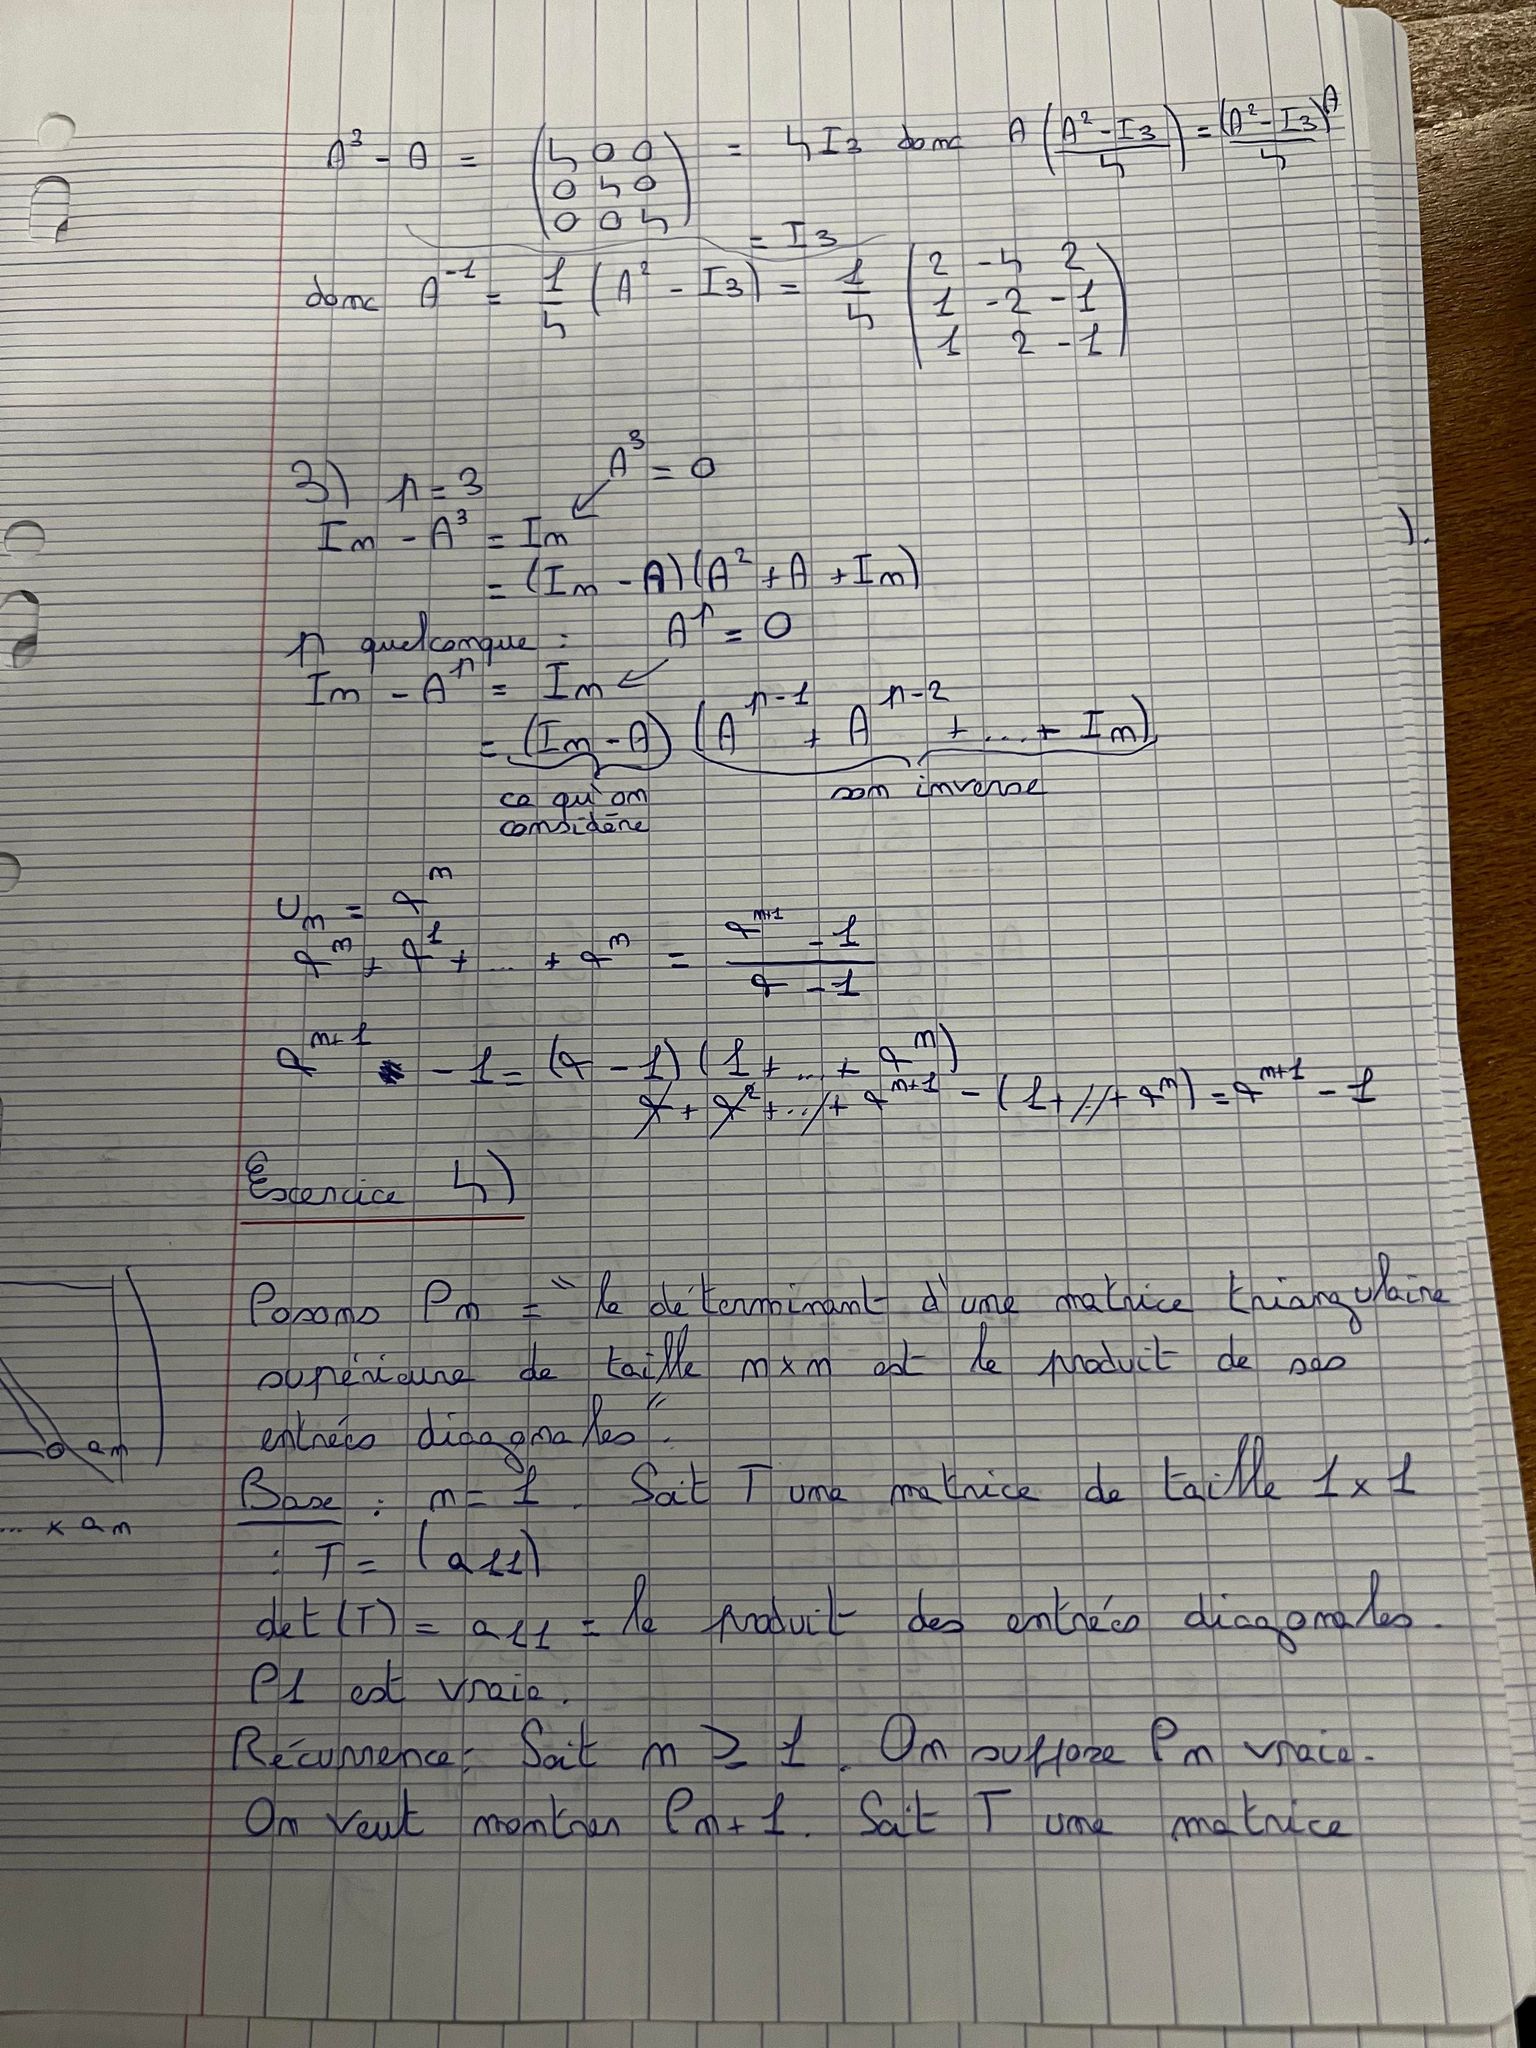 A³ - A = (4 0 0) = 4 I3 donc A ((A² - I3)/4) = ((A² - I3)/4) A
(0 4 0)
(0 0 4)
= I3
donc A⁻¹ = 1/4 (A² - I3) = 1/4 (2 -4 2)
(1 -2 -1)
(1 2 -1)
3) p = 3 A³ = 0
In - A³ = In
= (In - A)(A² + A + In)
p quelconque : A^p = 0
In - A^p = In
= (In - A) (A^(p-1) + A^(p-2) + ... + In)
ce qu'on son inverse
considère
Un = q^n
q^n + q^1 + ... + q^n = (q^(n+1) - 1)/(q - 1)
q^(n+1) - 1 = (q - 1)(1 + ... + q^n)
q + q² + ... + q^(n+1) - (1 + ... + q^n) = q^(n+1) - 1
Exercice 4)
Posons Pn = "le déterminant d'une matrice triangulaire
supérieure de taille n×n est le produit de ses
entrées diagonales".
Base : n = 1. Soit T une matrice de taille 1 x 1
: T = (a11)
det(T) = a11 = le produit des entrées diagonales.
P1 est vraie.
Récurrence : Soit n ≥ 1. On suppose Pn vraie.
On veut montrer Pn+1. Soit T une matrice
0 an
... x an
).